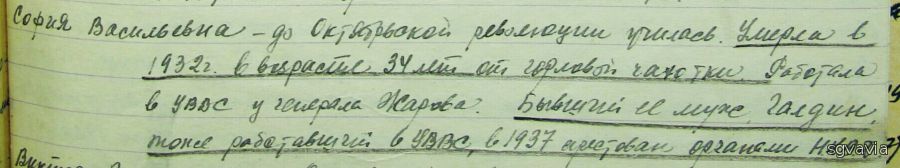 София Васильевна – до Октябрьской революции училась. Умерла в
1932г. в возрасте 34 лет от горловой чахотки. Работала
в УВВС у генерала Жарова. Бывший ее муж, Галдин,
тоже работавший в УВВС, в 1937 арестован органами НКВД
sgvavia